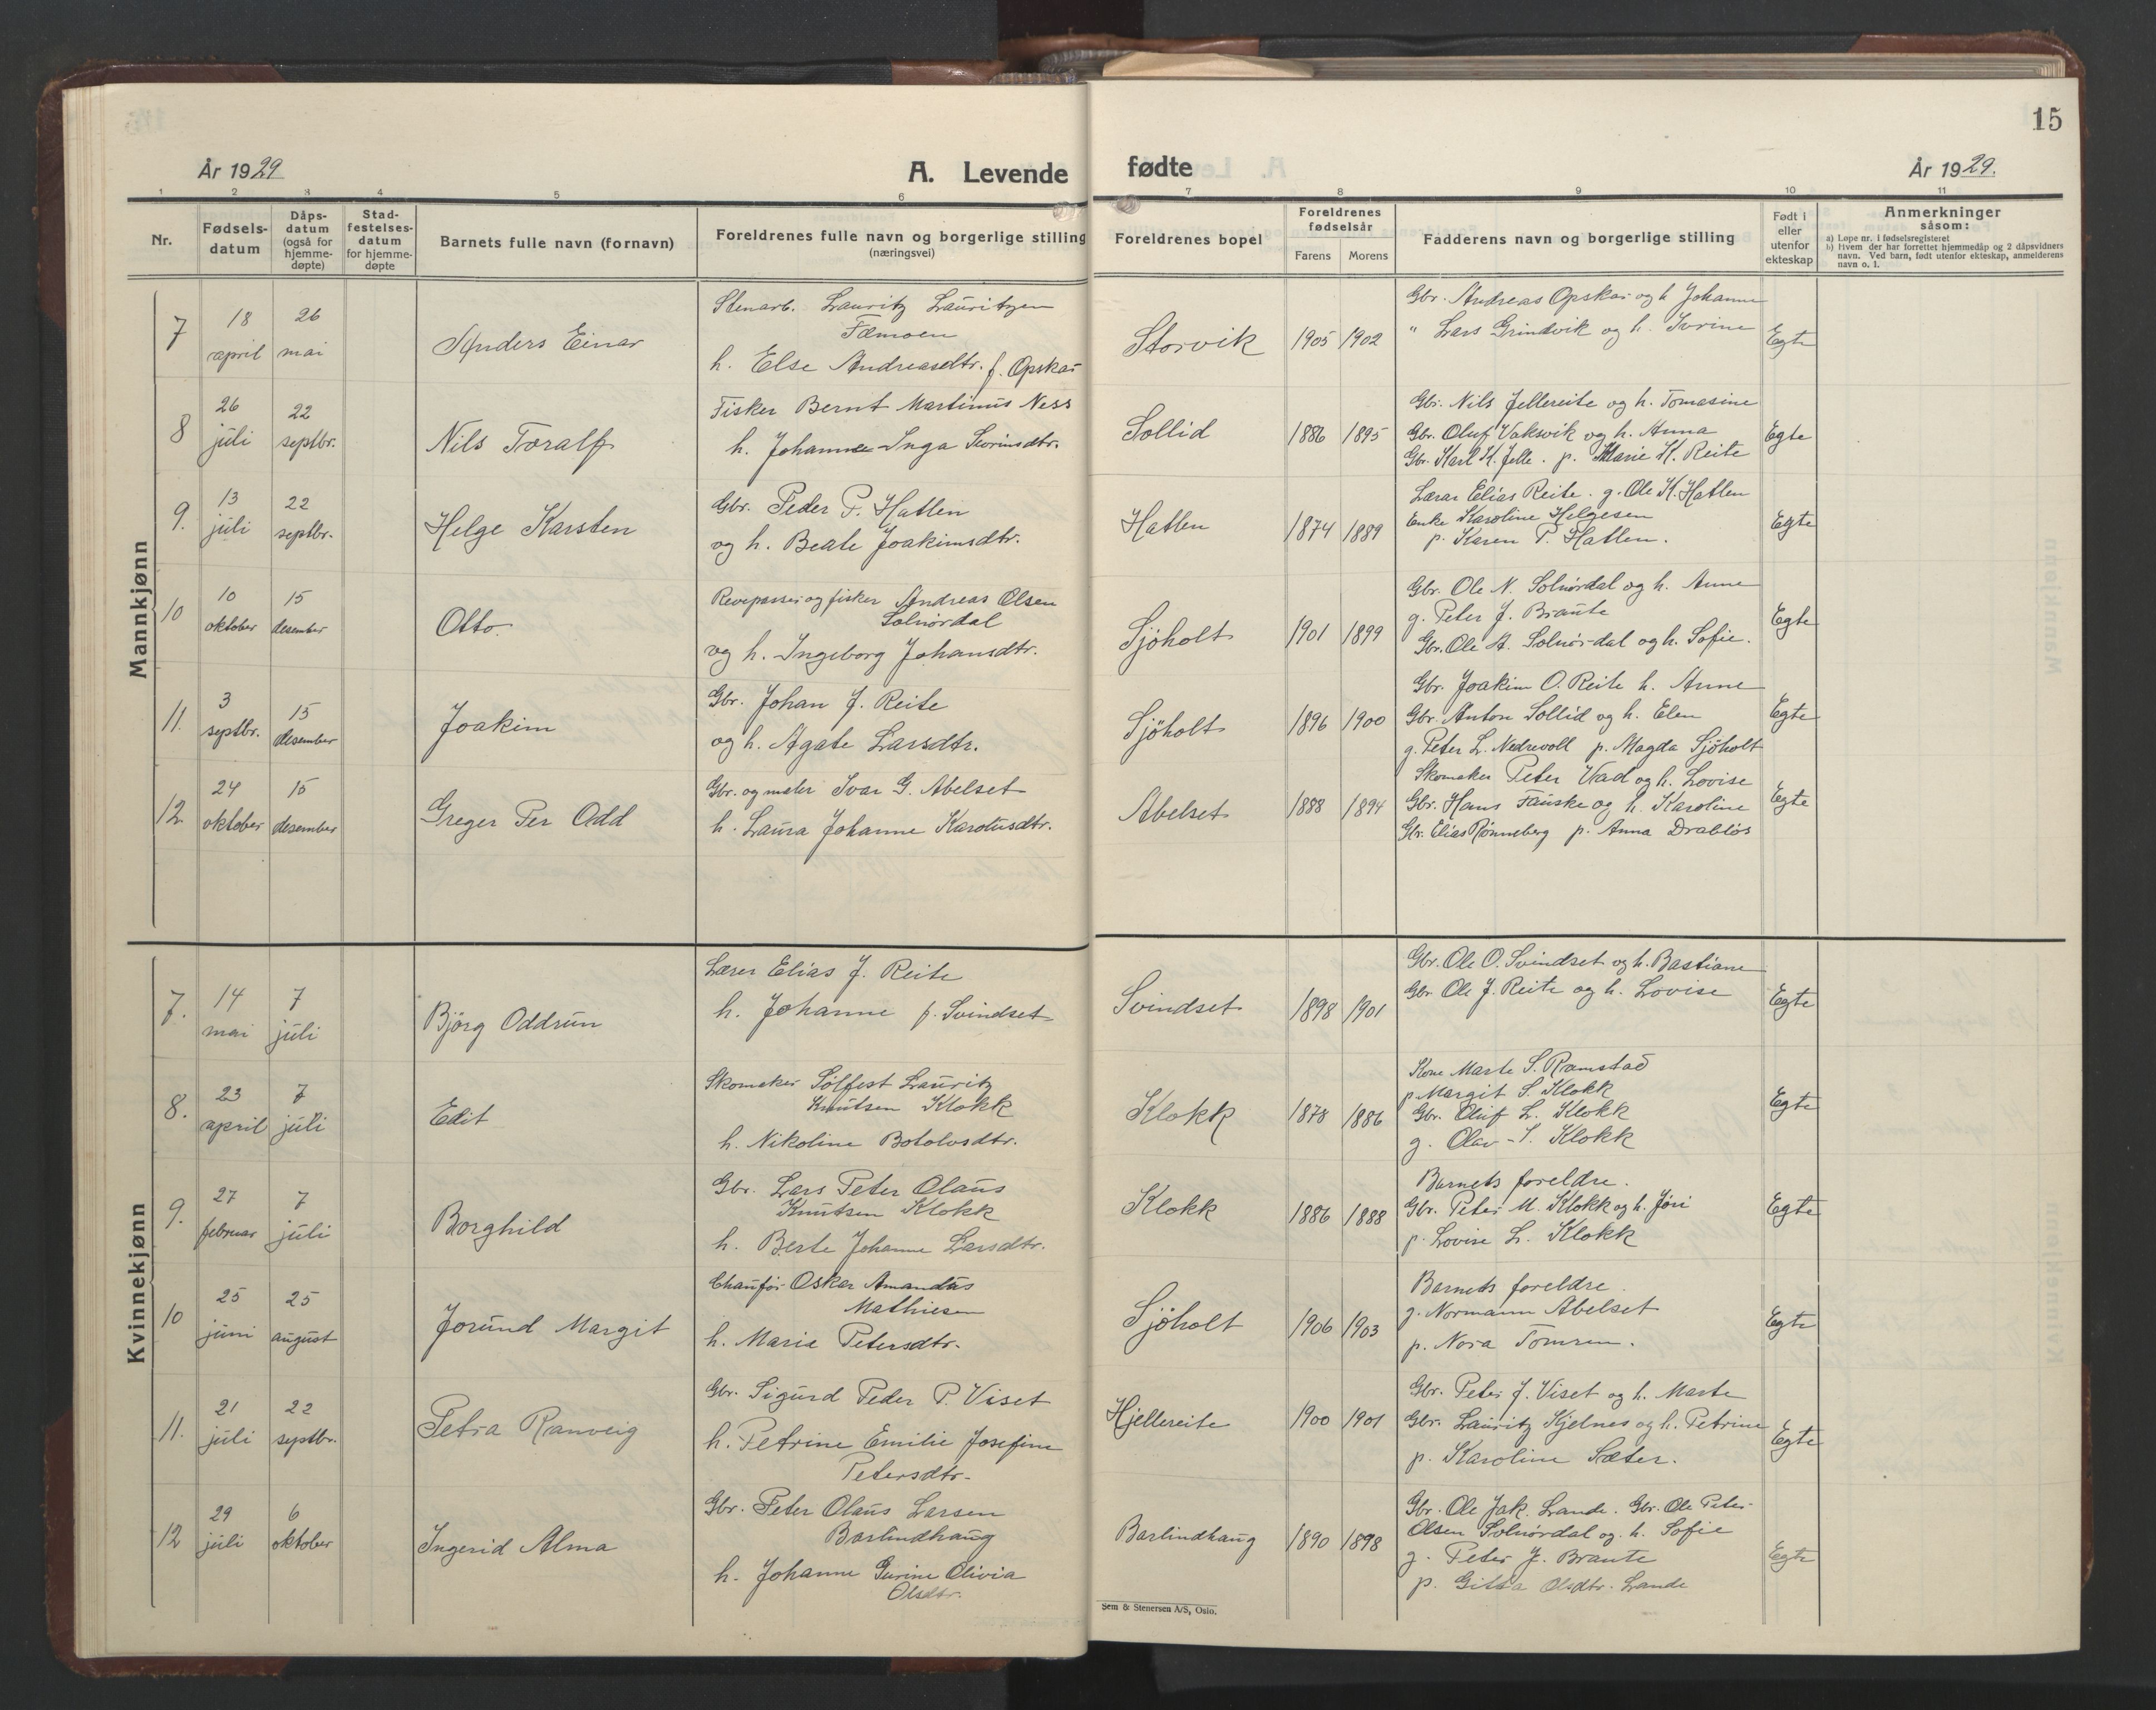 15
År 1929
A. Levende fødte
År 1929.
1 2 3 4 5 6 7 8 9 10 11
Nr.
Fødselsdatum
Dåpsdatum (også for hjemmedøpte)
Stadfestelsesdatum for hjemmedøpte
Barnets fulle navn (fornavn)
Foreldrenes fulle navn og borgerlige stilling
(næringsvei)
Foreldrenes bopel
Foreldrenes fødselsår
Farens Morens
Fadderens navn og borgerlige stilling
Født i eller utenfor ekteskap
Anmerkninger
såsom:
a) Løpe nr. i fødselsregisteret
b) Hvem der har forrettet hjemmedåp og 2 dåpsvidners
navn. Ved barn, født utenfor ekteskap, anmelderens
navn o. l.
Mannkjønn
7 18 april 26 mai Anders Einar
Stenarb. Lauritz Lauritzen
Fæmoen
h. Else Andreasdtr. f. Opskar
Storvik 1905 1902
Gbr. Andreas Opskar og h. Johanne
" Lars Grindvik og h. Ivrine
Egte
8 26 juli 22 septbr. Nils Toralf
Fisker Bernt Martinus Ness
h. Johanne Inga Severinsdtr.
Sollid 1886 1895
Gbr. Nils Jellereite og h. Tomasine
Gbr. Oluf Vaksvik og h. Anna
Gbr. Karl K. Jelle. p. Marie K. Reite
Egte
9. 13 juli 22 septbr. Helge Karsten
Gbr. Peder P. Hatlen
og h. Beate Joakimsdtr.
Hatlen 1874 1889
Lærar Elias Reite. g. Ole K. Hatlen
Enke Karoline Helgesen
p. Karen P. Hatlen.
Egte
10 10 oktober 15 desember Otto
Revepasser og fisker Andreas Olsen
Solnørdal
og h. Ingeborg Johansdtr.
Sjøholt 1901 1899
Gbr. Ole N. Solnørdal og h. Anne
g. Peter J. Braute
Gbr. Ole A. Solnørdal og h. Sofie.
Egte
11. 3 septbr. 15 desember Joakim
Gbr. Johan J. Reite
og h. Agate Larsdtr.
Sjøholt 1896 1900
Gbr. Joakim O. Reite h. Anne
Gbr. Anton Sollid og h. Elen
g. Peter L. Nedrevoll p. Magda Sjøholt
Egte
12. 24 oktober 15 desember Greger Per Odd
Gbr. og maler Ivar G. Abelset
h. Laura Johanne Karolusdtr.
Abelset 1888 1894
Skomaker Peter Vad og h. Lovise
Gbr. Hans Fauske og h. Karoline
Gbr. Elias Rønneberg p. Anna Drabløs
Egte
Kvinnekjønn
7. 14 mai 7 juli Bjørg Oddrun
Lærer Elias J. Reite
h. Johanne f. Svindset
Svindset 1898 1901
Gbr. Ole O. Svindset og h. Bastiane
Gbr. Ole J. Reite og h. Lovise
Egte
8. 23 april 7 juli Edit
Skomaker Sølfest Lauritz
Knutsen Klokk
h. Nikoline Botolvsdtr.
Klokk 1878 1886
Kone Marte S. Ramstad
p. Margit S. Klokk
Gbr. Oluf L. Klokk
g. Olav S. Klokk
Egte
9. 27 februar 7 juli Borghild
Gbr. Lars Peter Olaus
Knutsen Klokk
h. Berte Johanne Larsdtr.
Klokk 1886 1888
Barnets foreldre.
Gbr. Peter M. Klokk og h. Jøri
p. Lovise L. Klokk
Egte
10 25 juni 25 august Jorund Margit
Chaufør Oskar Amandus
Mathiesen
h. Marie Petersdtr.
Sjøholt 1906 1903
Barnets foreldre.
g. Normann Abelset
p. Nora Tomren.
Egte
11. 21 juli 22 septbr. Petra Ranveig
Gbr. Sigurd Peder P. Viset
h. Petrine Emilie Josefine
Petersdtr.
Hjellereite 1900 1901
Gbr. Peter J. Viset og h. Marte
Gbr. Lauritz Kjelnes og h. Petrine
p. Karoline Sæter.
Egte
12 29 juli 6 oktober Ingerid Alma
Gbr. Peter Olaus Larsen
Barlindhaug
h. Johanne Gurine Olivia
Olsdtr.
Barlindhaug 1890 1898
Gbr. Ole Jak. Lande. Gbr. Ole Peter
Olsen Solnørdal og h. Sofie
g. Peter J. Braute
p. Gitta Olsdtr. Lande
Egte
Sem & Stenersen A/S, Oslo.